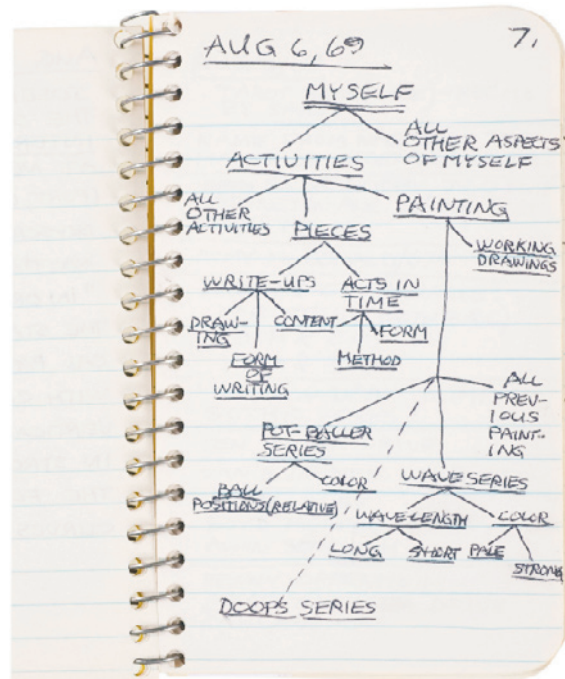 AUG 6, 69
7.
MYSELF
ALL
OTHER ASPECTS
OF MYSELF
ACTIVITIES
ALL
OTHER
ACTIVITIES
PIECES
PAINTING
WORKING
DRAWINGS
WRITE-UPS
ACTS IN
TIME
DRAW-
ING
CONTENT
FORM
FORM
OF
WRITING
METHOD
ALL
PREV-
IOUS
PAINT-
ING
PUT-BALLER
SERIES
BALL
POSITIONS (RELATIVE)
COLOR
WAVE SERIES
WAVELENGTH
COLOR
LONG
SHORT
PALE
STRONG
DOOPS SERIES